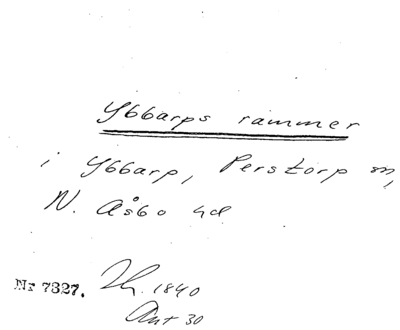 Ybbarps rammer
i Ybbarp, Perstorp sn,
N. Åsbo hd
Nr 7327. Th. 1840
Ant 30